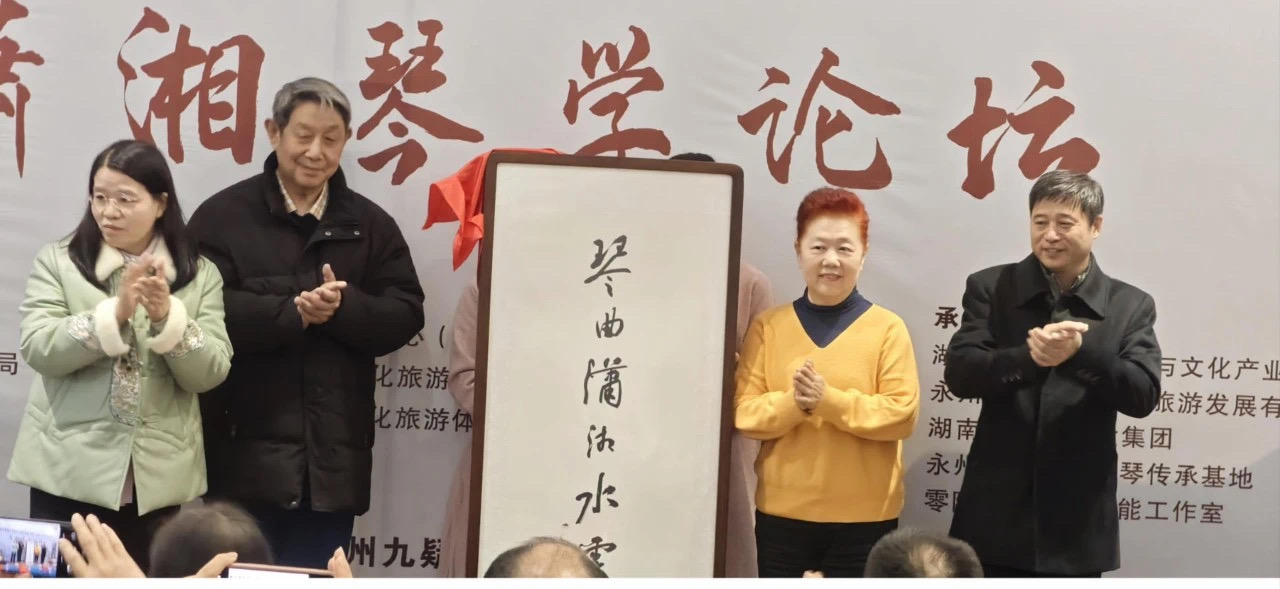 潇湘琴学论坛
琴曲潇湘水云
局
心（
化旅游
化旅游体
州九疑
承
湖
与文化产业
永州
旅游发展有
湖南
集团
永州
琴传承基地
零陵
能工作室